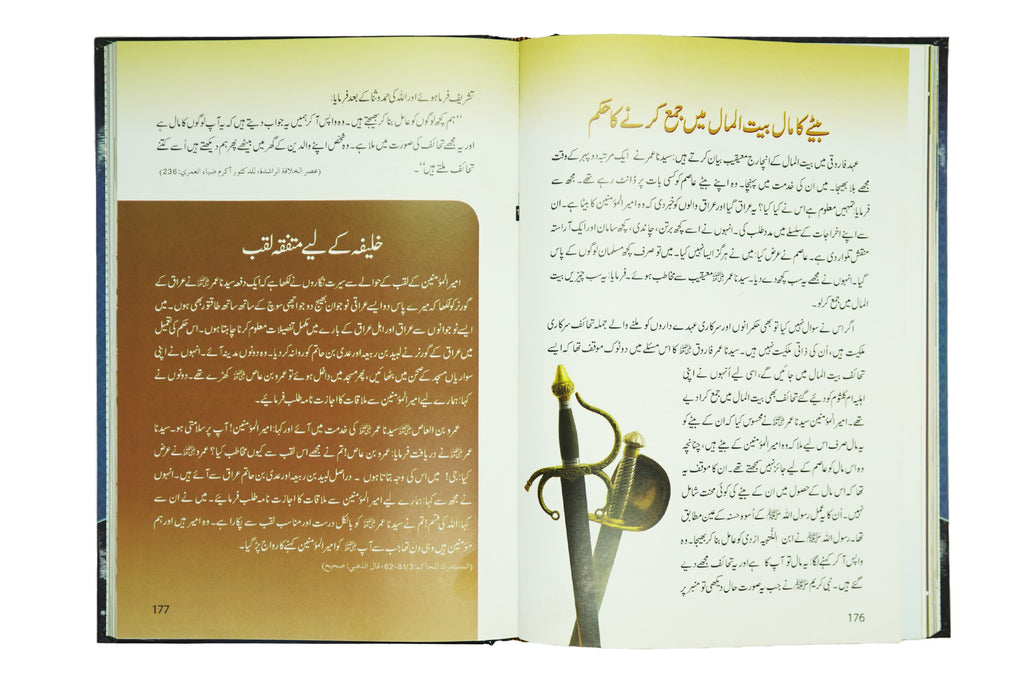 بیٹے کا مال بیت المال میں جمع کرنے کا حکم
عہد فاروقی میں بیت المال کے انچارج معیقیب بیان کرتے ہیں: سیدنا عمر نے ایک مرتبہ دوپہر کے وقت
مجھے بلا بھیجا۔ میں ان کی خدمت میں پہنچا۔ وہ اپنے بیٹے عاصم کو کسی بات پر ڈانٹ رہے تھے۔ مجھ سے
فرمایا: تمہیں معلوم ہے اس نے کیا کیا؟ یہ عراق گیا اور عراق والوں کو خبر دی کہ وہ امیرالمؤمنین کا بیٹا ہے۔ ان
سے اپنے اخراجات کے سلسلے میں مدد طلب کی۔ انہوں نے اسے کچھ برتن، چاندی، کچھ سامان اور ایک آراستہ
منقش تلوار دی ہے۔ عاصم نے عرض کیا: میں نے ہرگز ایسا نہیں کیا۔ میں تو صرف کچھ مسلمان لوگوں کے پاس
گیا۔ انہوں نے مجھے یہ سب کچھ دے دیا۔ سیدنا عمر ﷜ معیقیب سے مخاطب ہوئے۔ فرمایا: یہ سب چیزیں بیت
المال میں جمع کر لو۔
اگر اس نے سوال نہیں کیا تو بھی حکمرانوں اور سرکاری عہدے داروں کو ملنے والے جملہ تحائف سرکاری
ملکیت ہیں، اُن کی ذاتی ملکیت نہیں ہیں۔ سیدنا عمر فاروق ﷜ کا اس مسئلے میں دو ٹوک موقف تھا کہ ایسے
تحائف بیت المال میں جائیں گے، اسی لیے اُنھوں نے اپنی
اہلیہ ام کلثوم کو دیے گئے تحائف بھی بیت المال میں جمع کرا دیے
تھے۔ امیرالمؤمنین سیدنا عمر ﷜ نے محسوس کیا کہ ان کے بیٹے کو
یہ مال صرف اس لیے ملا کہ وہ امیرالمؤمنین کے بیٹے ہیں، چنانچہ
وہ اس مال کو عاصم کے لیے جائز نہیں سمجھتے تھے۔ ان کا موقف یہ
تھا کہ اس مال کے حصول میں ان کے بیٹے کی کوئی محنت شامل
نہیں۔ اُن کا یہ عمل رسول اللہ ﷺ کے اُسوہ حسنہ کے عین مطابق
تھا۔ رسول اللہ ﷺ نے ابن اللُّتْبِیہ ازدی کو عامل بنا کر بھیجا۔ وہ
واپس آ کر کہنے لگا: یہ مال تو آپ کا ہے اور یہ تحائف مجھے دیے
گئے ہیں۔ نبی کریم ﷺ نے جب یہ صورت حال دیکھی تو منبر پر
176
تشریف فرما ہوئے اور اللہ کی حمد و ثنا کے بعد فرمایا:
”ہم کچھ لوگوں کو عامل بنا کر بھیجتے ہیں۔ وہ واپس آ کر ہمیں یہ جواب دیتے ہیں کہ یہ آپ لوگوں کا مال ہے
اور یہ مجھے تحائف کی صورت میں ملا ہے۔ وہ شخص اپنے والدین کے گھر میں بیٹھے پھر ہم دیکھتے ہیں اُسے کتنے
تحائف ملتے ہیں“۔ (عصر الخلافة الراشدة، للدكتور أكرم ضياء العمري:236)
خلیفہ کے لیے متفقہ لقب
امیرالمؤمنین کے لقب کے حوالے سے سیرت نگاروں نے لکھا ہے کہ ایک دفعہ سیدنا عمر ﷜ نے عراق کے
گورنر کو لکھا کہ میرے پاس دو ایسے عراقی نوجوان بھیج دو جو اچھی سوچ کے ساتھ ساتھ طاقتور بھی ہوں۔ میں
ایسے نوجوانوں سے عراق اور اہل عراق کے بارے میں مکمل تفصیلات معلوم کرنا چاہتا ہوں۔ اس حکم کی تعمیل
میں عراق کے گورنر نے لبید بن ربیعہ اور عدی بن حاتم کو روانہ کر دیا۔ وہ دونوں مدینہ آئے۔ انہوں نے اپنی
سواریاں مسجد کے صحن میں بٹھائیں، پھر مسجد میں داخل ہوئے تو عمرو بن عاص ﷜ کھڑے تھے۔ دونوں نے
کہا: ہمارے لیے امیرالمؤمنین سے ملاقات کا اجازت نامہ طلب فرمائیے۔
عمرو بن العاص ﷜ سیدنا عمر ﷜ کی خدمت میں آئے اور کہا: امیرالمؤمنین! آپ پر سلامتی ہو۔ سیدنا
عمر ﷜ نے دریافت فرمایا: عمرو بن عاص! تم نے مجھے اس لقب سے کیوں مخاطب کیا؟ عمرو نے عرض
کیا: جی! میں اس کی وجہ بتاتا ہوں۔ دراصل لبید بن ربیعہ اور عدی بن حاتم عراق سے آئے ہیں۔ انہوں
نے مجھ سے کہا: ہمارے لیے امیرالمؤمنین سے ملاقات کا اجازت نامہ طلب فرمائیے۔ میں نے ان سے
کہا: اللہ کی قسم! تم نے سیدنا عمر ﷜ کو بالکل درست اور مناسب لقب سے پکارا ہے۔ وہ امیر ہیں اور ہم
مؤمنین ہیں وہی دن تھا جب سے آپ ﷜ کو امیرالمؤمنین کہنے کا رواج پڑ گیا۔
(المستدرك للحاكم:3/81-82، قال الذهبي: صحيح)
177